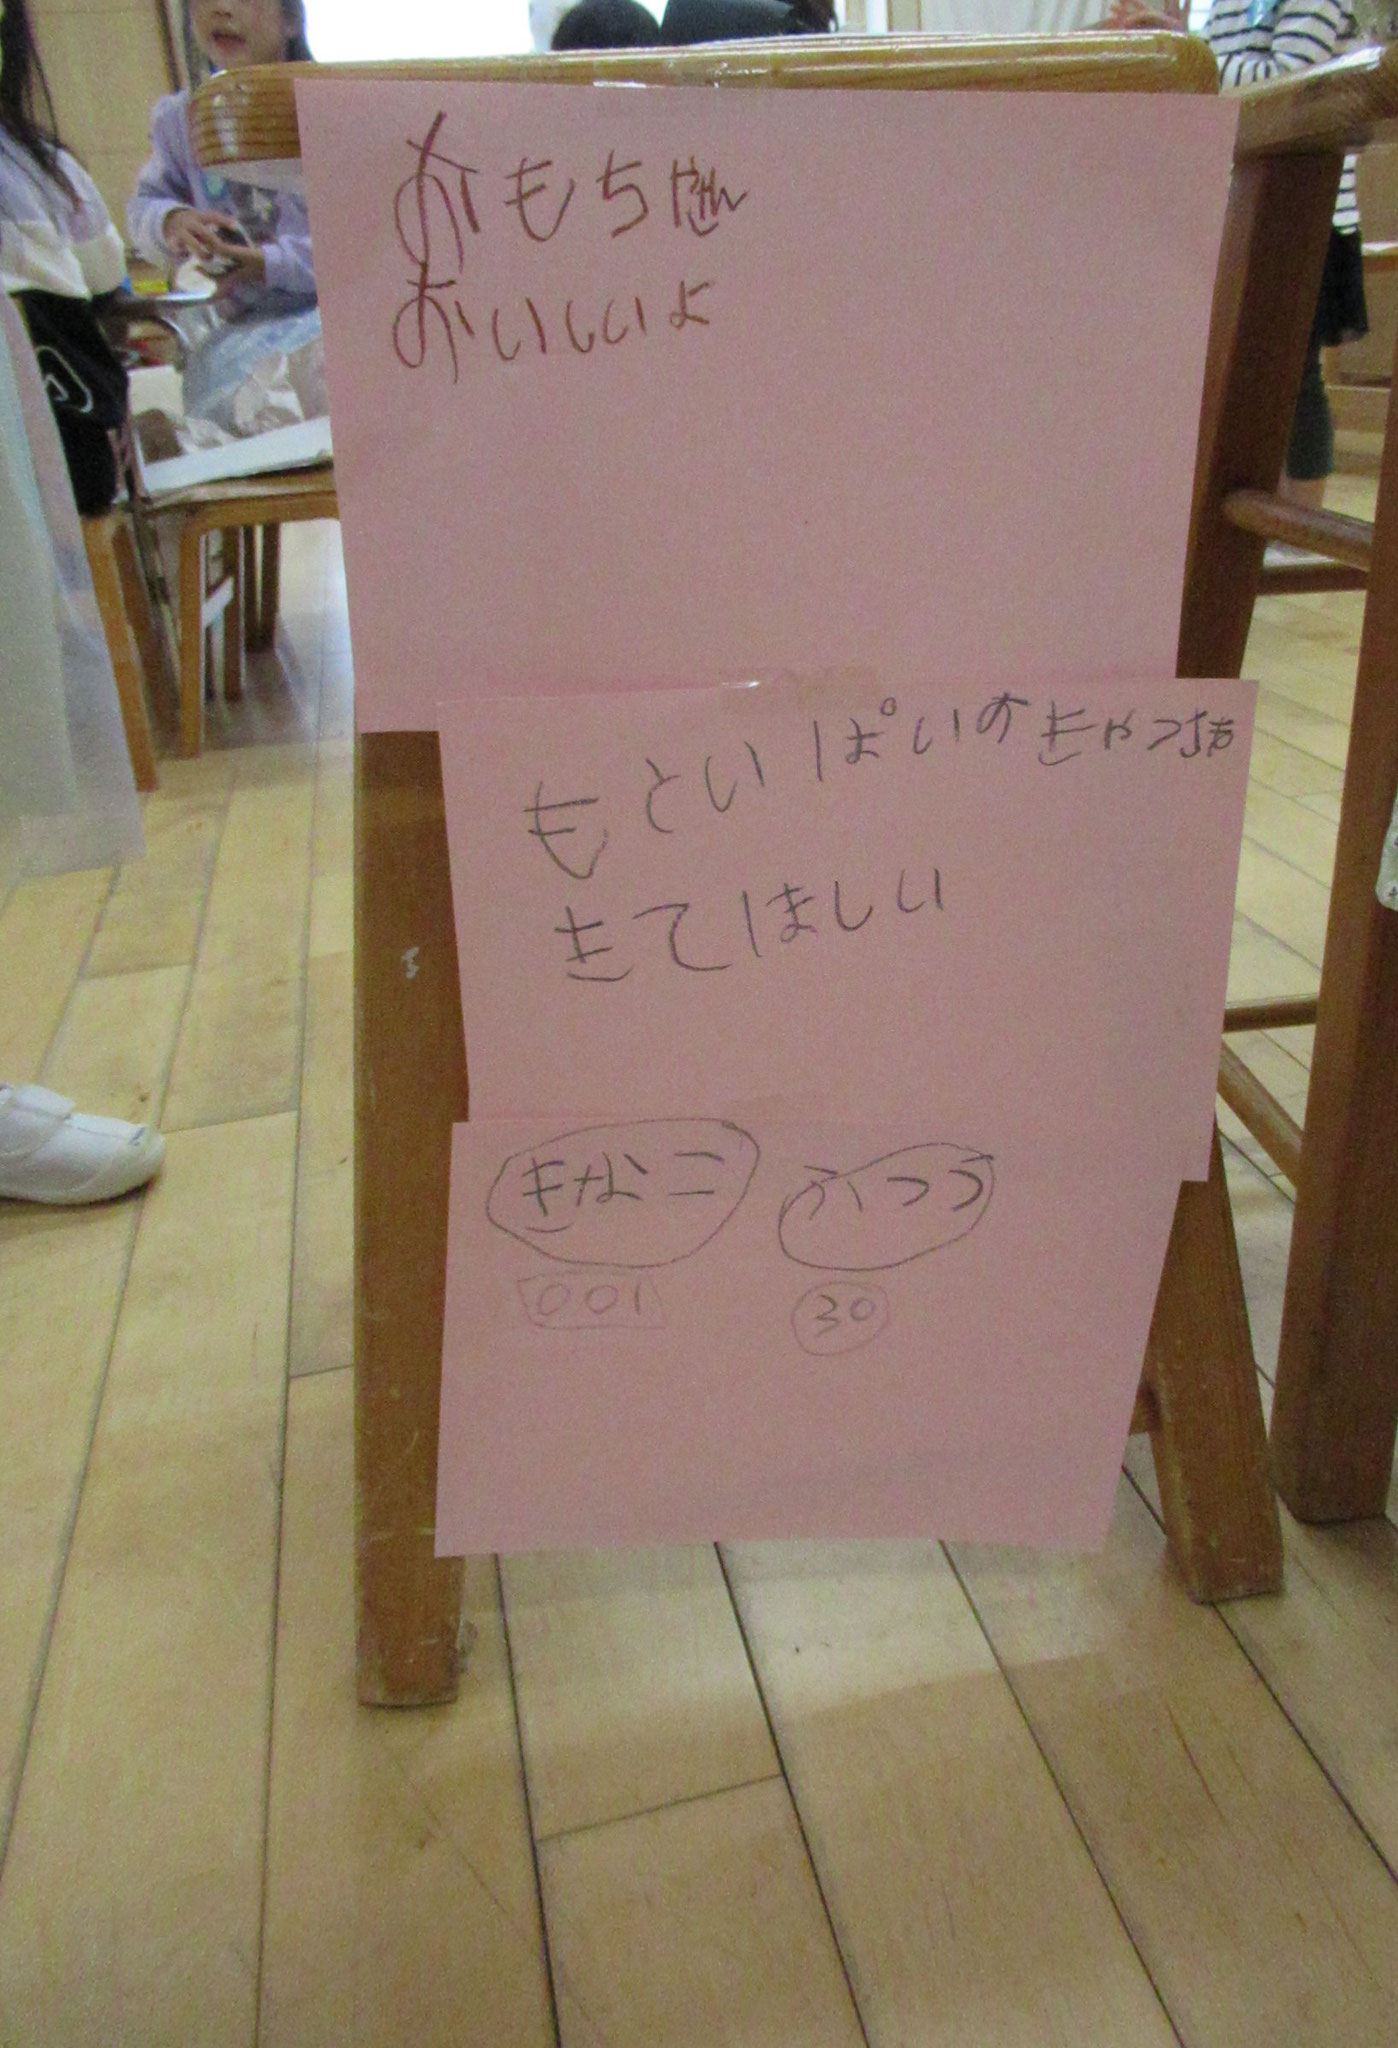 おもちやさん
おいしいよ
もといぱいのおきやつちお
きてほしい
きなこ ふつう
001 30